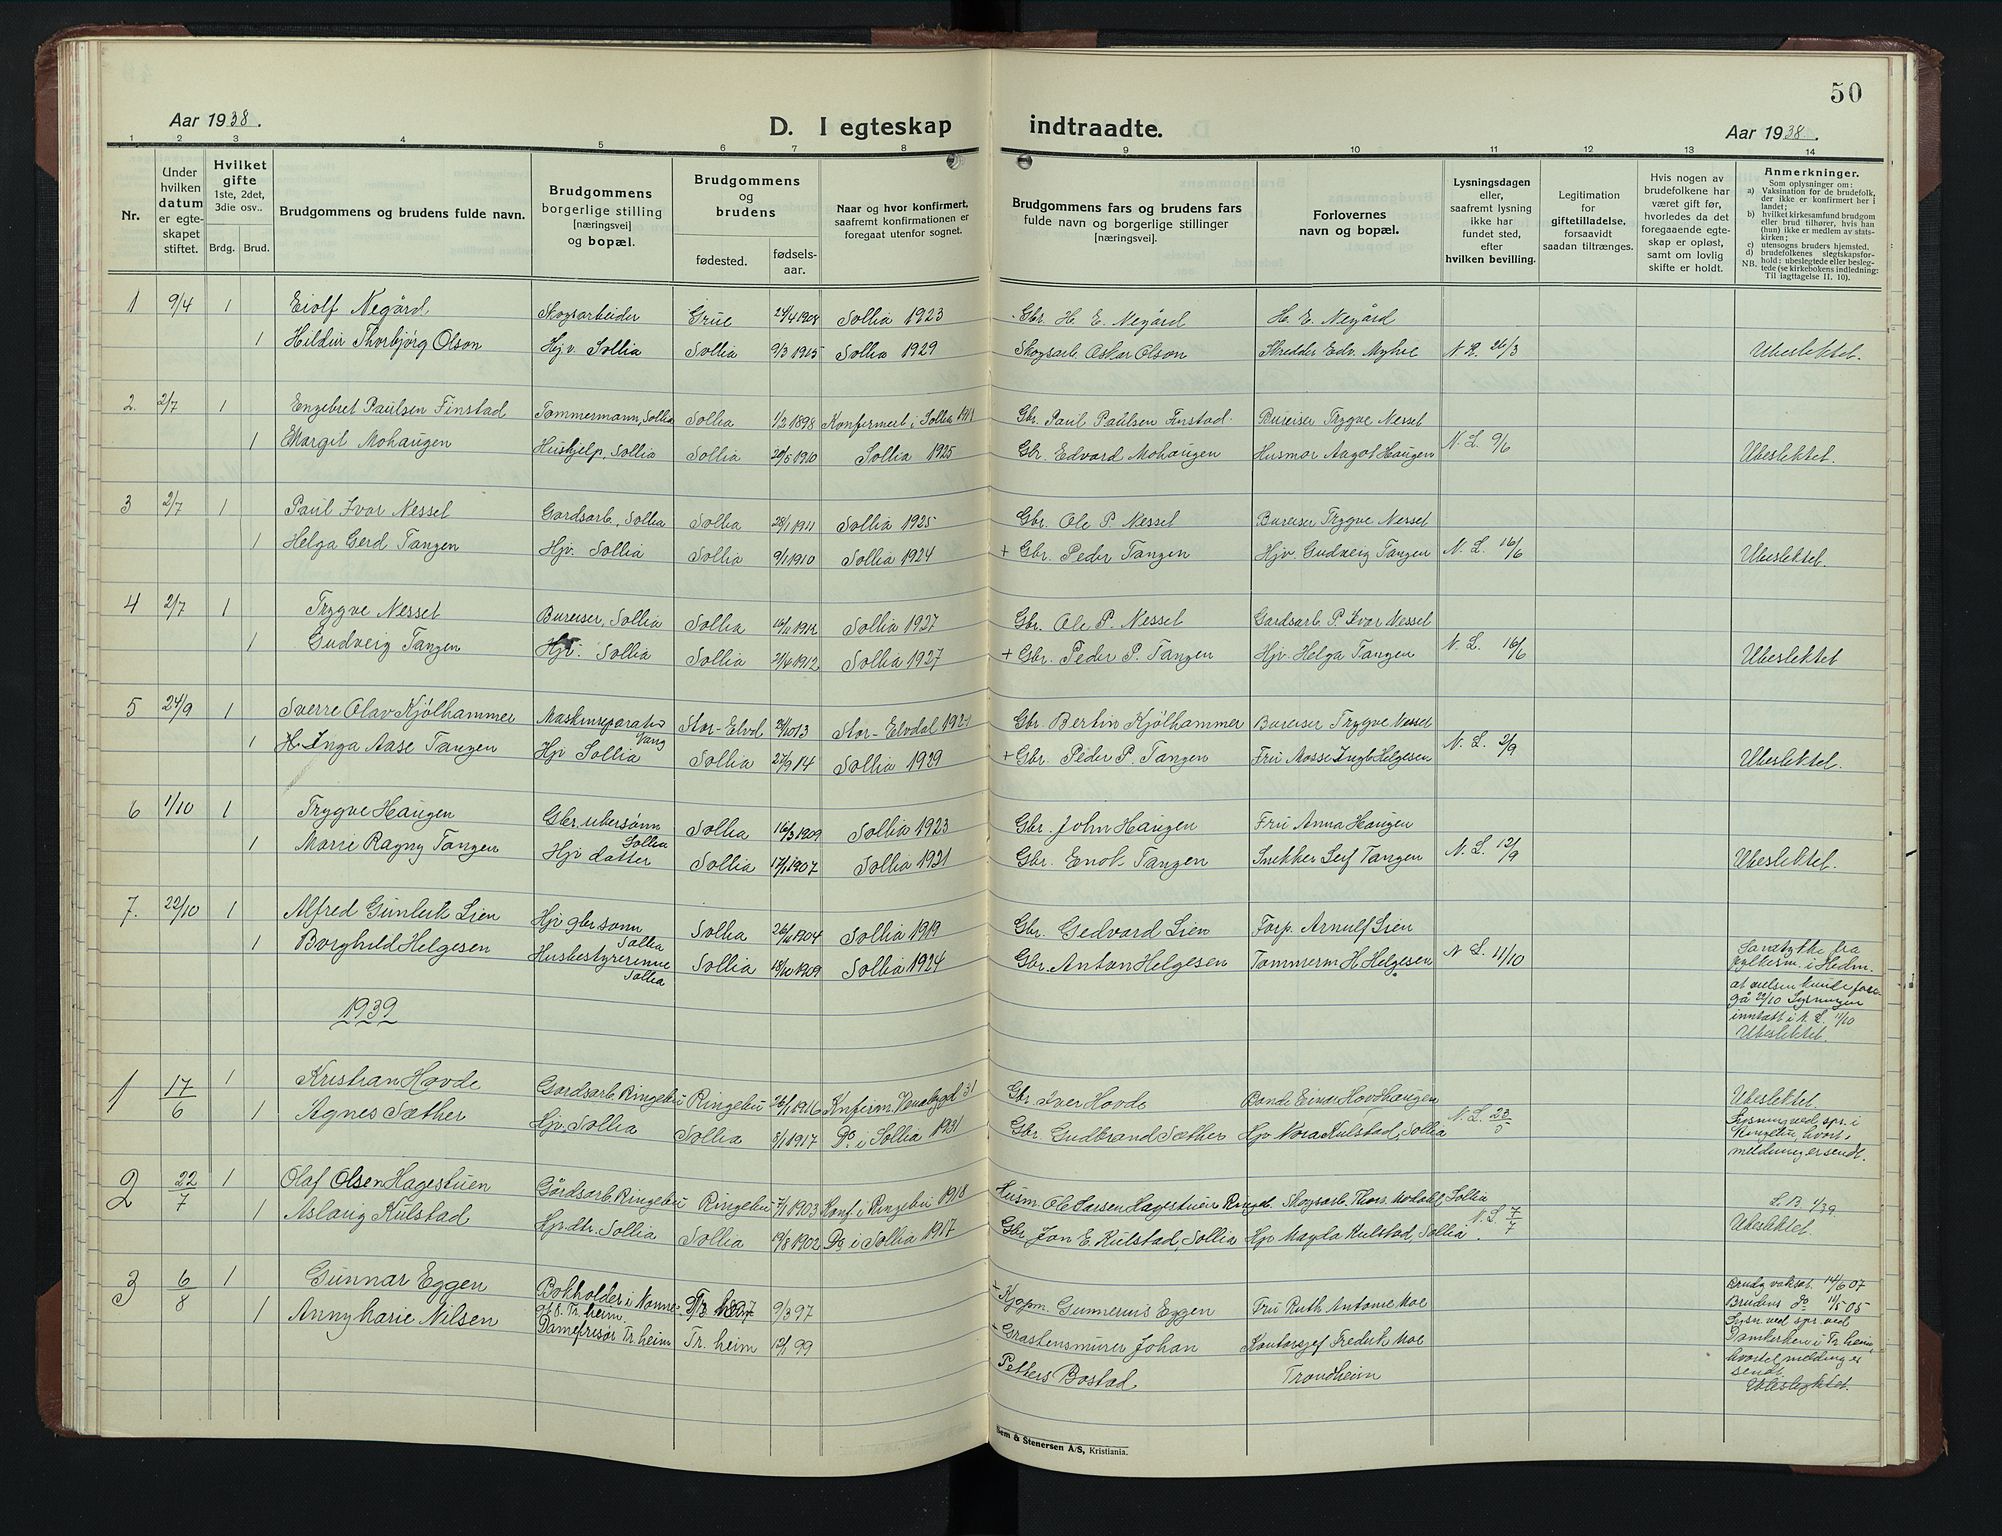 50
Aar 1938.
D. I egteskap indtraadte.
Aar 1938.
1 2 3 4 5 6 7 8 9 10 11 12 13 14
Nr.
Under hvilken datum er egte-skapet stiftet.
Hvilket gifte 1ste, 2det, 3die osv..
Brdg. Brud.
Brudgommens og brudens fulde navn.
Brudgommens borgerlige stilling [næringsvei] og bopæl.
Brudgommens og brudens
fødested. fødsels-aar.
Naar og hvor konfirmert, saafremt konfirmationen er foregaat utenfor sognet.
Brudgommens fars og brudens fars fulde navn og borgerlige stillinger [næringsvei].
Forlovernes navn og bopæl.
Lysningsdagen eller, saafremt lysning ikke har fundet sted, efter hvilken bevilling.
Legitimation for giftetilladelse, forsaavidt saadan tiltrænges.
Hvis nogen av brudefolkene har været gift før, hvorledes da det foregaaende egte-skap er opløst, samt om lovlig skifte er holdt.
Anmerkninger.
Som oplysninger om:
a) Vaksination for de brudefolk, der ikke er konfirmert her i landet;
b) hvilket kirkesamfund brudgom eller brud tilhører, hvis han (hun) ikke er medlem av stats-kirken;
c) utensogns bruders hjemsted.
d) brudefolkenes slegtskapsfor-hold: ubeslegtede eller besleg-tede (se kirkebokens indledning:
NB. Til iagttagelse II. 10).
1 9/4 1 Eiolf Negård Skogsarbeider Grue 24/4 1908 Sollia 1923 Gbr. H. E. Negård H. E. Negård
1 Hildur Thorbjörg Olson Hjv. Sollia Sollia 9/3 1915 Sollia 1929 Skogsarb. Oskar Olson Skredder Edv. Myhre N. L. 26/3 Ubeslektet.
2. 2/7 1 Engebret Paulsen Finstad Tømmermann, Sollia Sollia 1/2 1898 Konfirmert i Sollia Gbr. Paul Paulsen Finstad Bureiser Trygve Nessel
1 Margit Mohaugen Hushjelp, Sollia Sollia 20/5 1910 Sollia 1925 Gbr. Edvard Mohaugen Husmor Aagot Haugen N. L. 9/6 Ubeslektet.
3 2/7 1 Paul Ivar Nessel Gardsarb., Sollia Sollia 28/1 1911 Sollia 1925 Gbr. Ole P. Nessel Bureiser Trygve Nessel
1 Helga Gerd Tangen Hjv. Sollia Sollia 9/1 1910 Sollia 1924 + Gbr. Peder Tangen Hjv. Gudveig Tangen N. L. 16/6 Ubeslektet.
4 2/7 1 Trygve Nessel Bureiser, Sollia Sollia 16/11 1912 Sollia 1927 Gbr. Ole P. Nessel Gardsarb. P. Ivar Nessel
1 Gudveig Tangen Hjv. Sollia Sollia 2/4 1912 Sollia 1927 + Gbr. Peder P. Tangen Hjv. Helga Tangen N. L. 16/6 Ubeslektet
5 24/9 1 Sverre Olav Kjølhammer Maskinreparatør Stor-Elvd. 20/10 13 Stor-Elvdal Gbr. Bertin Kjølhammer Bureiser Trygve Nessel
1 H. Inga Aase Tangen Hjv Sollia Sollia 27/9 14 Sollia 1929 + Gbr. Peder P. Tangen Fru Mosse Ingb. Helgesen N. L. 2/9 Ubeslektet.
6 1/10 1 Trygve Haugen Gbr. ubersønn Sollia Sollia 16/3 1909 Sollia 1923 Gbr. John Haugen Fru Anna Haugen
1 Marie Ragny Tangen Hjv datter Sollia 17/1 1907 Sollia 1921 Gbr. Enok Tangen Snekker Leif Tangen N. L. 12/9 Ubeslektet.
7. 22/10 1 Alfred Gunleik Lien Hjv gbr sønn Sollia Sollia 26/11 1904 Sollia 1919 Gbr. Gedvard Lien Forp. Arnulf Lien
1 Borghild Helgesen Husbestyrerinne Sollia Sollia 18/10 1909 Sollia 1924 Gbr. Anton Helgesen Tømmerm. H. Helgesen N L. 11/10 Samtykke fra
fylkesm. i Hedm.
at vielsen kunde fore-
gå 22/10 Lysningen
inntatt i N. L. 11/10
Ubeslektet.
1939
1 17/6 1 Kristian Hovde Gardsarb. Ringebu Ringebu 26/1 1916 Knfirm. Venabygd 31 Gbr. Iver Hovde Bonde Einar Hovdhaugen Ubeslektet.
1 Agnes Sæther Hjv. Sollia Sollia 5/1 1917 Do. i Sollia 1931 Gbr. Gudbrand Sæther Hjv Nora Kulstad, Sollia N. L. 23/5 Lysning ved spr. i
Ringebu hvort.
melding er sendt.
2 22/7 1 Olaf Olsen Hagestuen Gårdsarb. Ringebu Ringebu 7/1 1903 Konf. i Ringebu 1918 Husm. Ole Larsen Hagestuen Ringeb. Skogsarb. Thor Modahl Sollia L. B. 1/39.
1 Aslaug Kulstad Hjv. dtr. Sollia Sollia 19/8 1902 Do i Sollia 1917 Gbr. Jon E. Kulstad, Sollia Hjv Magda Kulstad, Sollia. N. L. 7/7 Ubeslektet.
3 6/8 1 Gunnar Eggen Bokholder i Nonne-
gt. 8. Tr.heim. 9/3 97 + Kjøpm. Gunnerius Eggen Fru Ruth Antonie Moe Brudg vaksat. 14/6 07
1 Anny Marie Nilsen Damefrisør Tr. heim Tr. heim 12/1 99 + Graastensmurer Johan
Petters Bostad Kontorsjef Fredrik Moe
Trondheim Brudens do 11/5 05
Lysn ved spr. ved
Domkirken i Tr heim,
hvortil melding er
sendt.
Ubeslegtet.
Sem & Stenersen A/S, Kristiania.